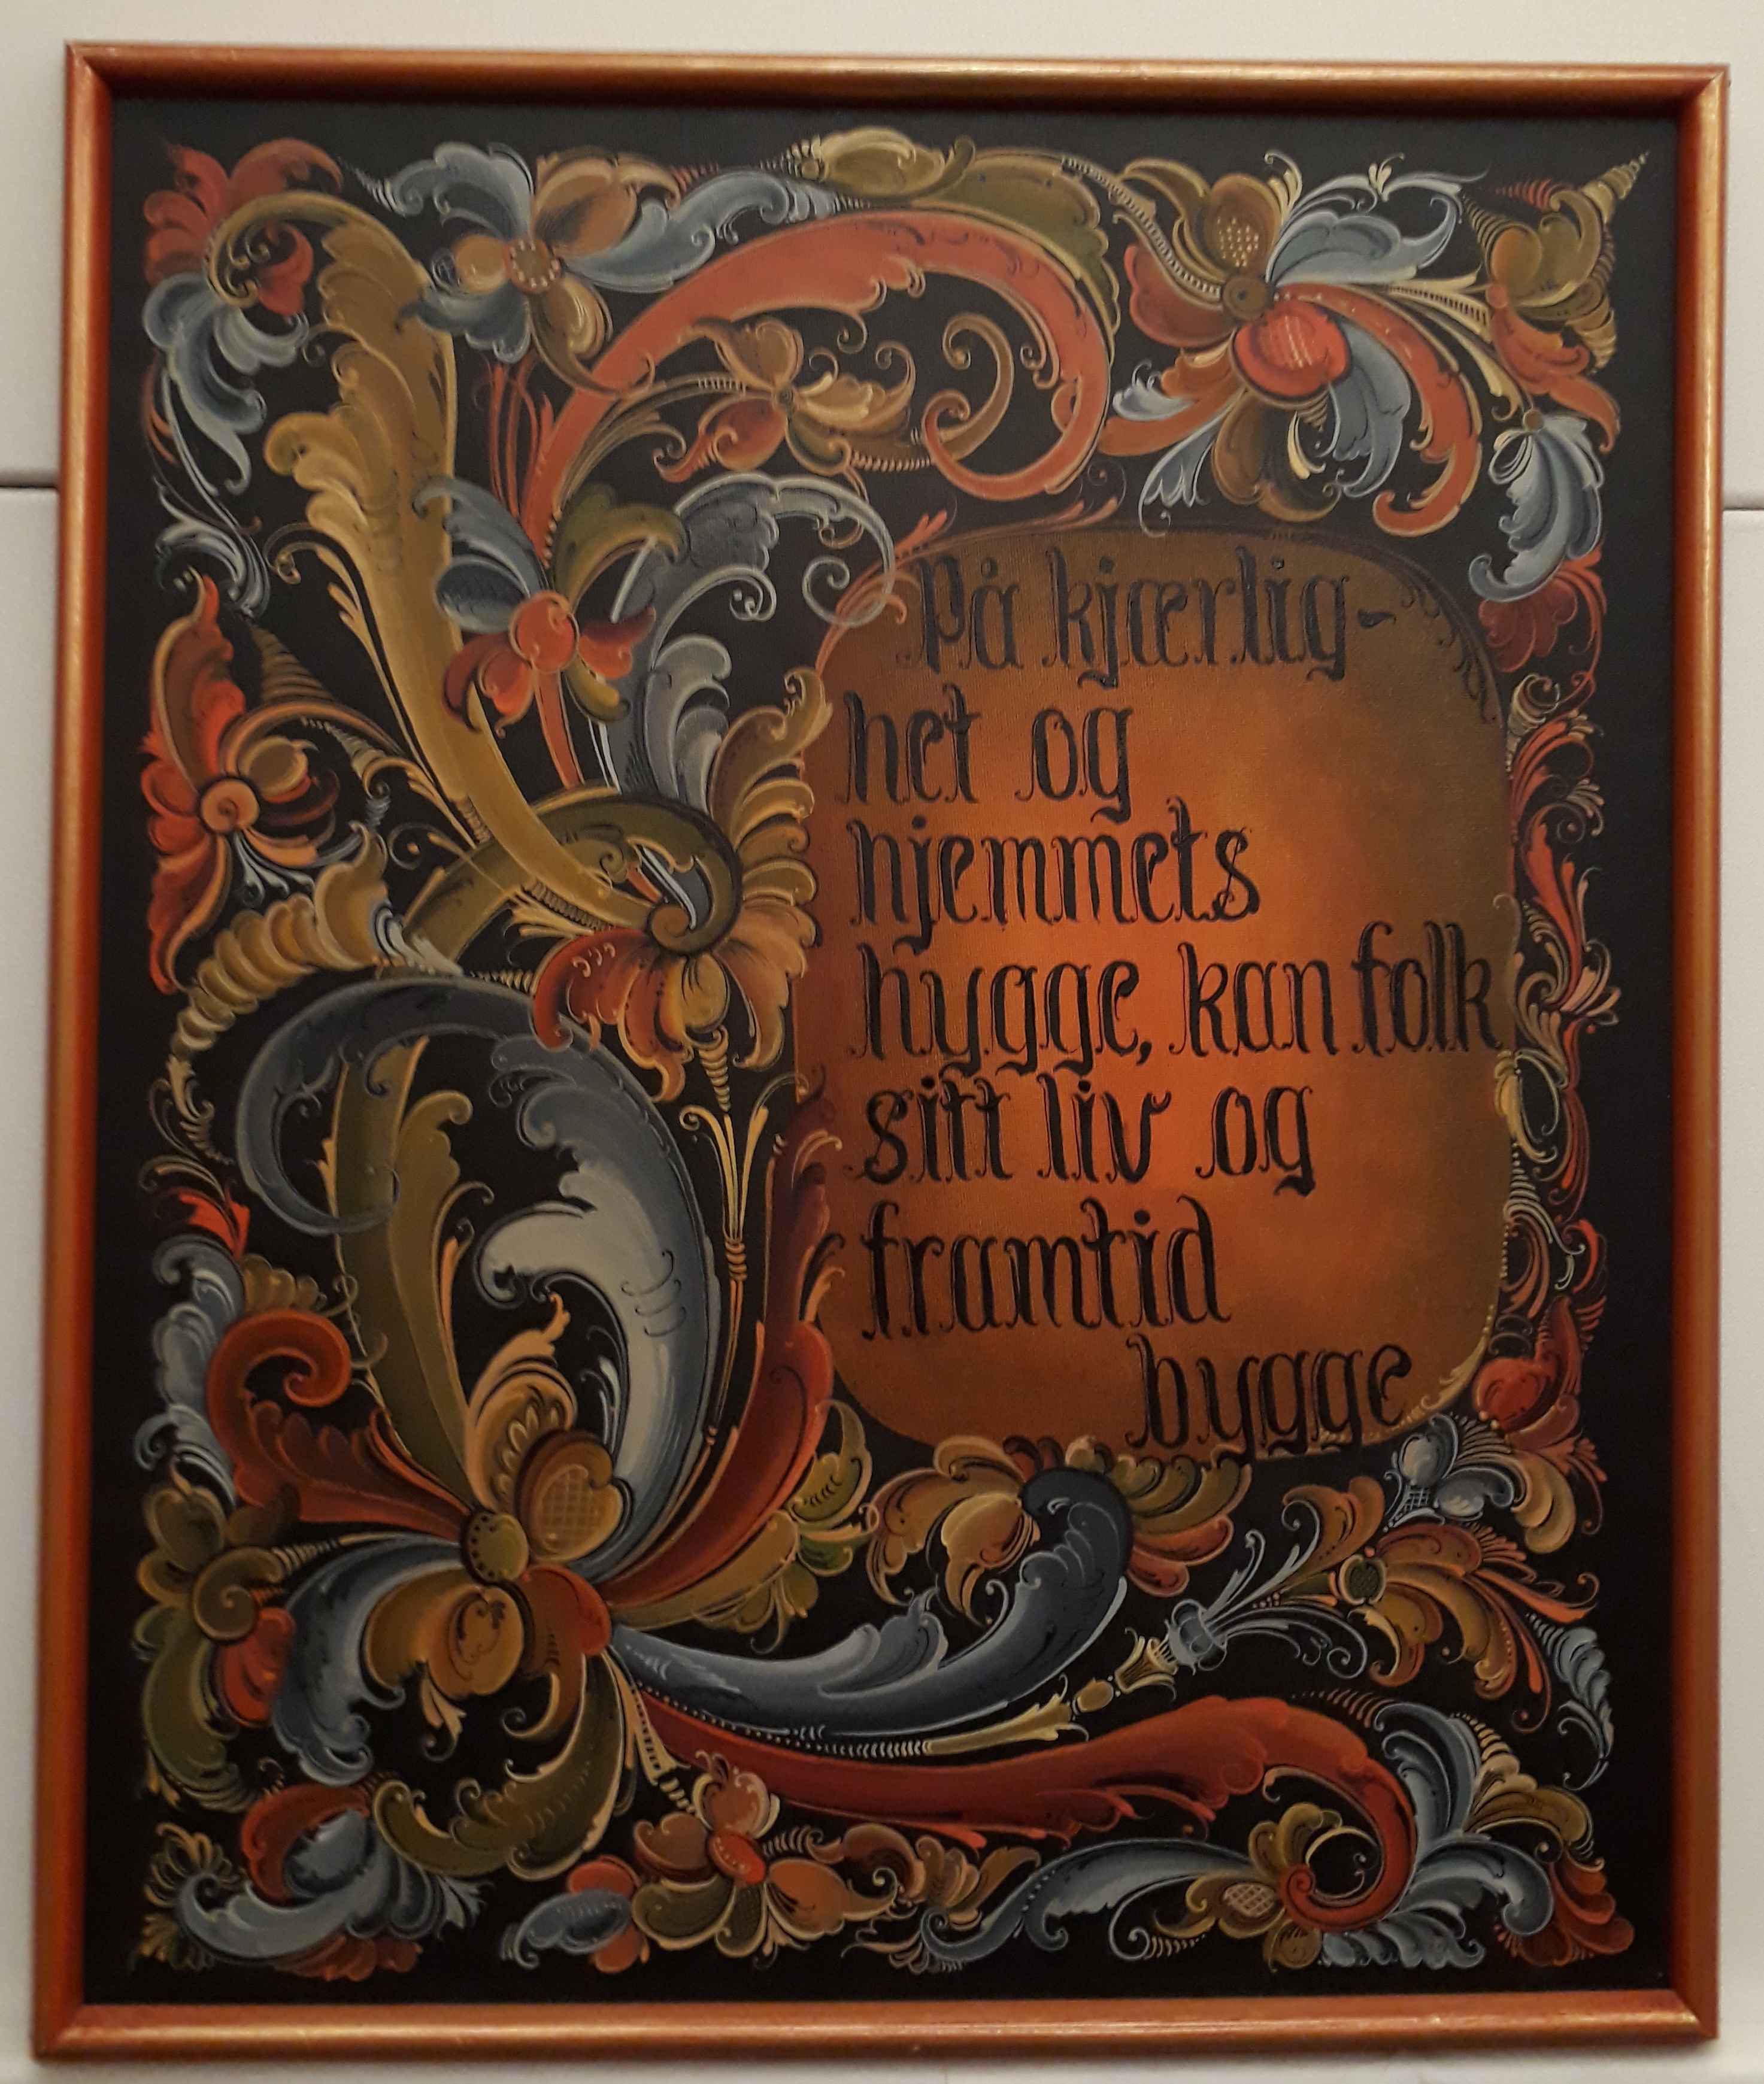 På kjærlig-
het og
hjemmets
hygge, kan folk
sitt liv og
framtid
bygge